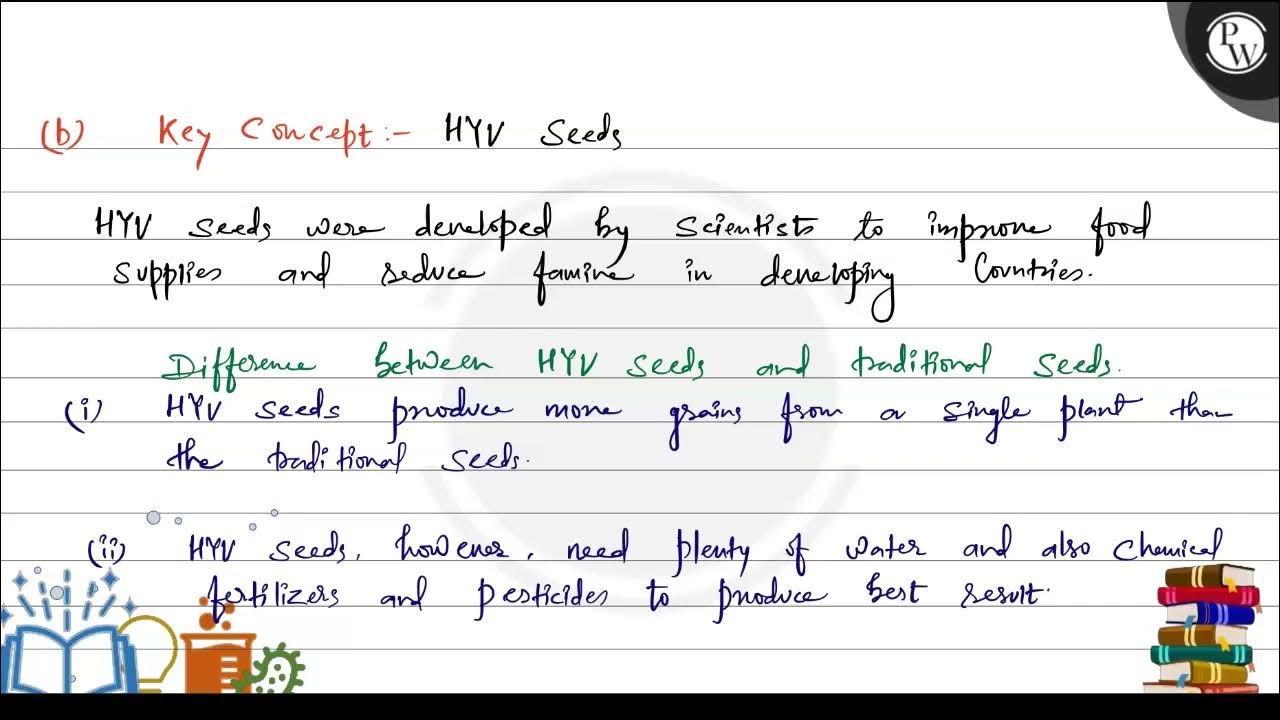 PW
(b) Key Concept:- HYV Seeds
HYV seeds were developed by scientists to improve food
supplies and reduce famine in developing Countries.
Difference between HYV seeds and traditional seeds.
(i) HYV seeds produce more grains from a single plant than
the traditional seeds.
(ii) HYV seeds, however, need plenty of water and also chemical
fertilizers and pesticides to produce best result.